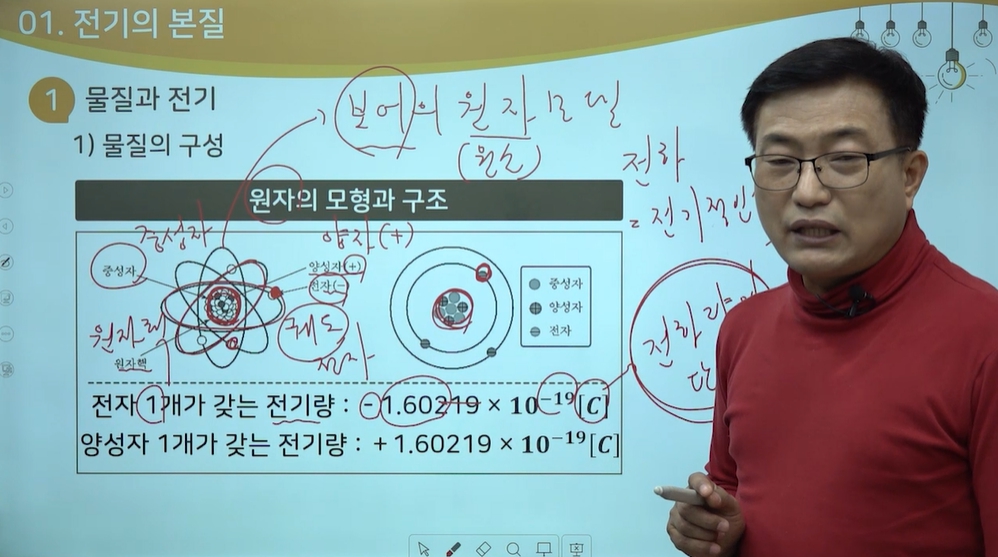 01. 전기의 본질
1 물질과 전기
1) 물질의 구성
보어의 원자 모델
(원소)
전하
= 전기적인
원자의 모형과 구조
중성자
양자(+)
중성자
양성자(+)
전자(-)
원자핵
원자핵
궤도
전자
중성자
양성자
전자
전하량의
단
전자 1개가 갖는 전기량 : -1.60219 × 10⁻¹⁹[C]
양성자 1개가 갖는 전기량 : +1.60219 × 10⁻¹⁹[C]